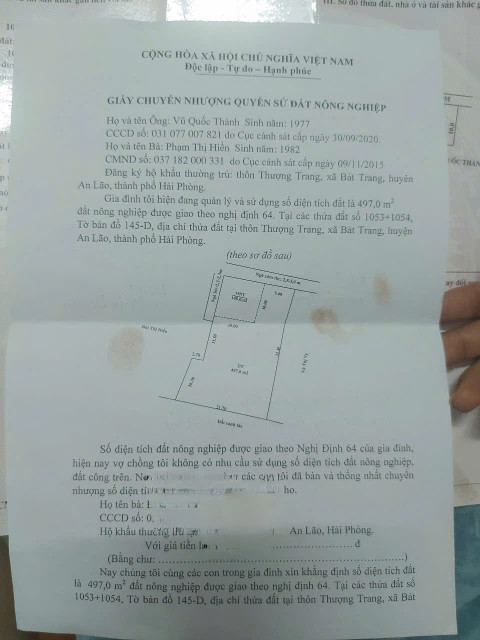 III. Sơ đồ thửa đất, nhà ở và tài sản khác g
CỘNG HÒA XÃ HỘI CHỦ NGHĨA VIỆT NAM
Độc lập - Tự do – Hạnh phúc
GIẤY CHUYỂN NHƯỢNG QUYỀN SỬ ĐẤT NÔNG NGHIỆP
Họ và tên Ông: Vũ Quốc Thành Sinh năm: 1977
CCCD số: 031 077 007 821 do Cục cảnh sát cấp ngày 30/09/2020.
Họ và tên Bà: Phạm Thị Hiền Sinh năm: 1982
CMND số: 037 182 000 331 do Cục cảnh sát cấp ngày 09/11/2015
Đăng ký hộ khẩu thường trú: thôn Thượng Trang, xã Bát Trang, huyện
An Lão, thành phố Hải Phòng.
Gia đình tôi hiện đang quản lý và sử dụng số diện tích đất là 497,0 m²
đất nông nghiệp được giao theo nghị định 64. Tại các thửa đất số 1053+1054,
Tờ bản đồ 145-D, địa chỉ thửa đất tại thôn Thượng Trang, xã Bát Trang, huyện
An Lão, thành phố Hải Phòng.
(theo sơ đồ sau)
497,0 m2
Số diện tích đất nông nghiệp được giao theo Nghị Định 64 của gia đình,
hiện nay vợ chồng tôi không có nhu cầu sử dụng số diện tích đất nông nghiệp,
đất công trên. các con tôi đã bàn và thống nhất chuyển
nhượng số diện ho.
Họ tên bà:
CCCD số: 0
Hộ khẩu thường An Lão, Hải Phòng.
Với giá tiền đ
(Bằng chữ: )
Nay chúng tôi cùng các con trong gia đình xin khẳng định số diện tích đất
là 497,0 m² đất nông nghiệp được giao theo nghị định 64. Tại các thửa đất số
1053+1054, Tờ bản đồ 145-D, địa chỉ thửa đất tại thôn Thượng Trang, xã Bát